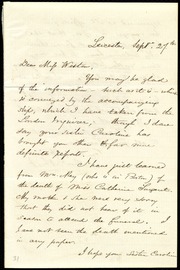 Leicester, Sept. 27th
Dear Miss Weston,
You may be glad
of the information - such as it is - which
is conveyed by the accompanying
slips, which I have taken from the
London Inquirer; though I dare
say your sister Caroline has
brought you others before more
definite reports.
I have just learned
from Mrs. May (who is in Boston) of
the death of Miss Catherine Sargent.
My mother & she were very sorry
that they did not hear of it in
season to attend the funeral. I
have not seen the death mentioned
in any paper.
I hope your sister Caroline